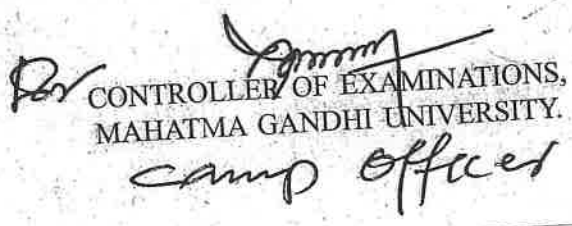 For CONTROLLER OF EXAMINATIONS,
MAHATMA GANDHI UNIVERSITY.
Camp Officer